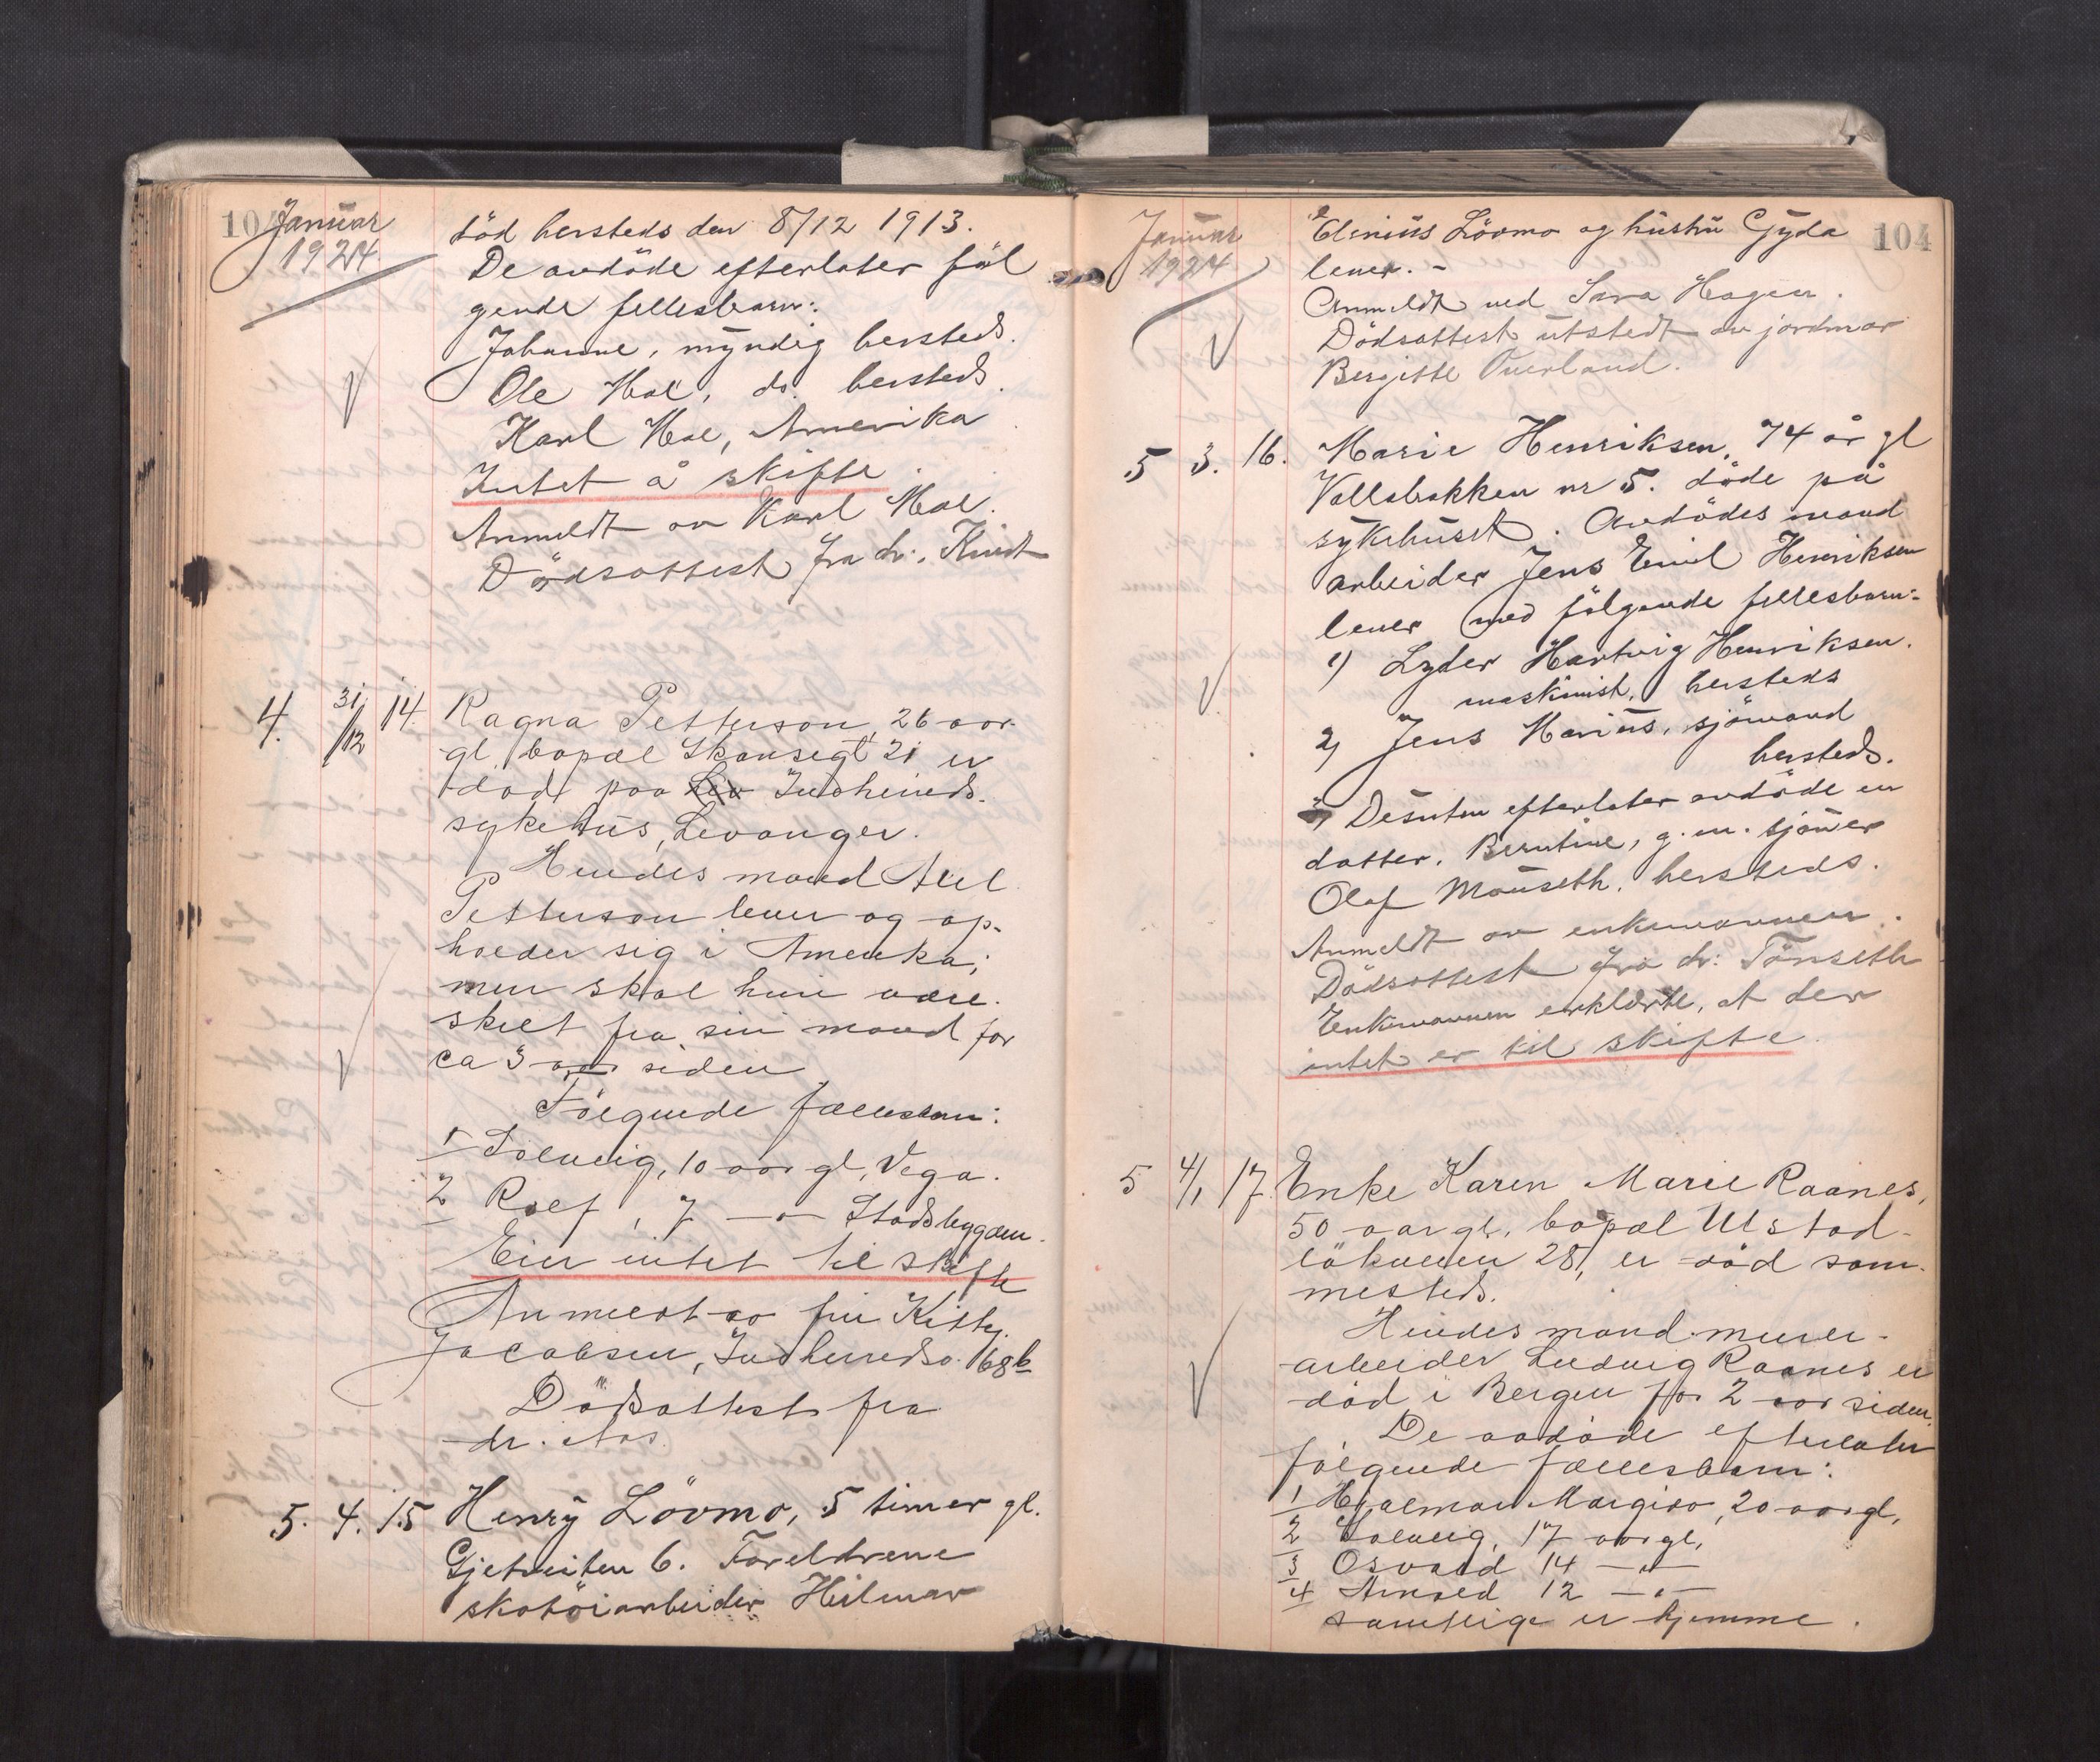 104
Januar
1924
död hersteds den 8/12 1913.
De avdöde efterlater föl
gende fellesbarn:
Johanne, myndig hersteds.
Ole Hol, do. hersteds.
Karl Hol, Amerika
Intet å skifte.
Anmeldt av Karl Hol.
Dödsattest fra dr.
4. 31/12 14. Ragna Petterson, 26 aar
gl. bopæl Skansegt 21 er
död paa Indherreds-
sykehus, Levanger.
Hendes mand Axel
Petterson lever og op-
holder sig i Amerika;
men skal hun være
skilt fra sin mand for
ca 3 aar siden
Fölgende fællesbarn:
1 Solveig, 10 aar gl, Vega.
2 Rolf, 7 —"— Stadsbygden.
Eier intet til skifte
Anmeldt av fru Kitty
Jacobsen, Indherredsv. 68b
Dödsattest fra
dr. Aas.
5. 4. 15 Henry Lövmo, 5 timer gl.
Gjetveiten 6. Foreldrene
skotöiarbeider Hilmar
Januar
1924
104
Elenius Lövmo og hustru Gyda
lever. -
Anmeldt ved Sara Hagen.
Dödsattest utstedt av jordmor
Bergitte Overland.
5 3. 16. Marie Henriksen, 74 år gl
Vollabakken nr 5. döde på
sykehuset. Avdödes mand
arbeider Jens Emil Henriksen
lever med fölgende fellesbarn:
1) Lyder Hartvig Henriksen.
maskinist, hersteds
2) Jens Marius, sjömand
hersteds.
Desuten efterlater avdöde en
datter, Berntine, g. m. sjauer
Olaf Mauseth, hersteds.
Anmeldt av enkemannen.
Dödsattest fra dr. Tönseth
Enkemannen erklærte, at der
intet er til skifte.
5 4/1 17. Enke Karen Marie Raanes,
50 aar gl. bopæl Ulstad-
lökveien 28, er död sam-
mesteds.
Hendes mand murer-
arbeider Ludvig Raanes er
död i Bergen for 2 aar siden.
De avdöde efterlater
fölgende fællesbarn:
1 Hjalmar Margido, 20 aar gl,
2 Solveig, 17 aar gl,
3 Osvald 14 —"—
4 Arnold 12 —"—
samtlige er hjemme.